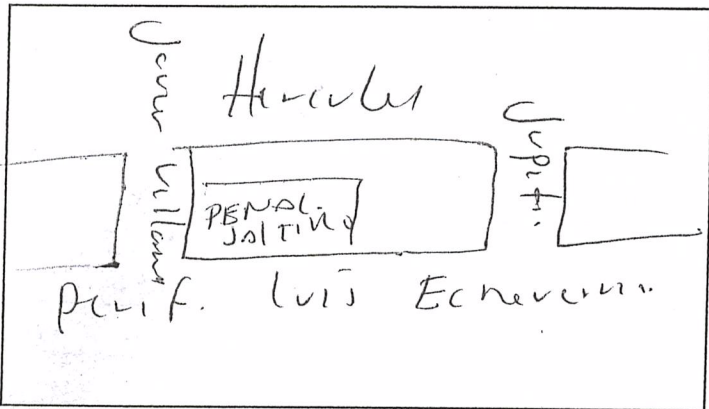 Hercules
Jupiter
PENAL
SALTILLO
Perif. Luis Echeverria.